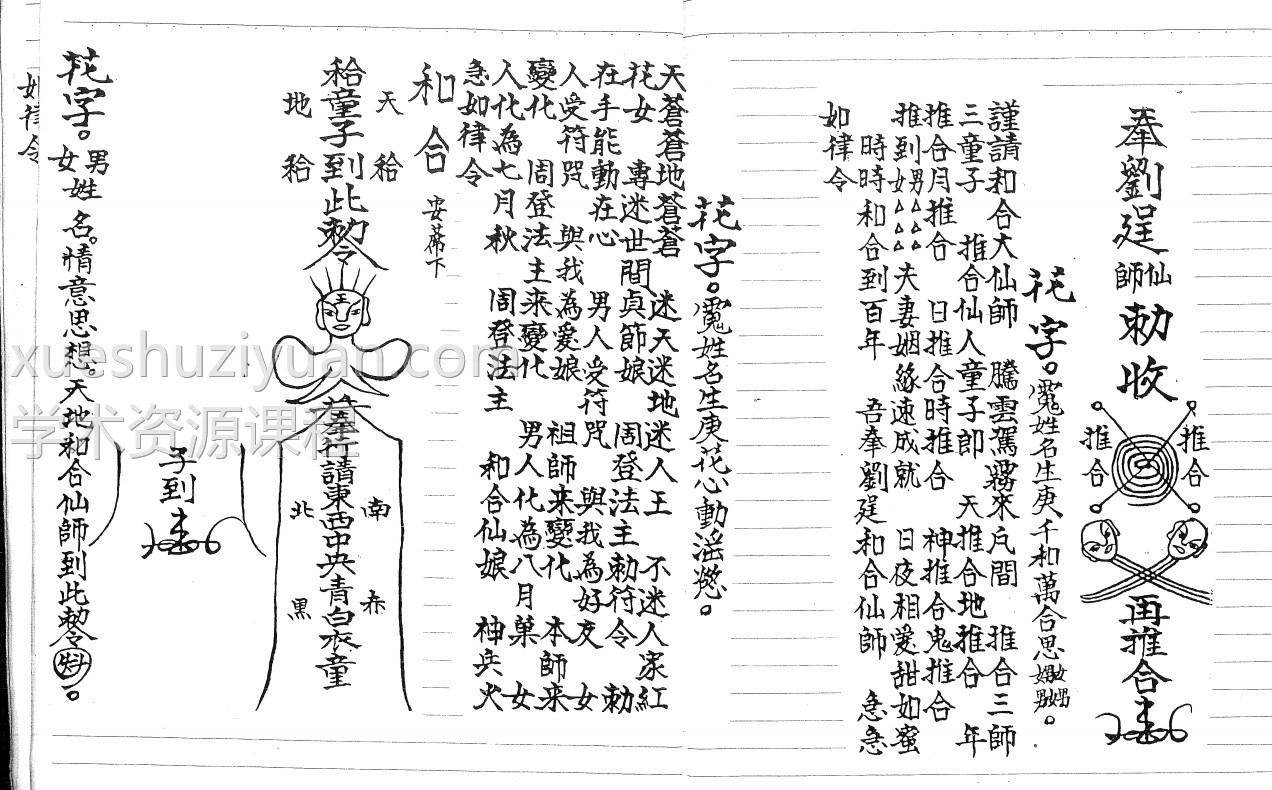 奉劉逞仙師勅收
推合
推合
再推合
花字。魂姓名生庚千和萬合思
謹請和合大仙師 騰雲駕霧來凡間 推合三師
三童子 推合仙人童子郎 天推合地推合 年
推合月推合 日推合時推合 神推合鬼推合
推到男女△△△△△△夫妻姻緣速成就 日夜相愛甜如蜜
時時和合到百年 吾奉劉逞和合仙師 急急
如律令
花字。魂姓名生庚花心動淫慾。
天蒼蒼地蒼蒼 迷天迷地迷人王 不迷人家紅
花女 專迷世間貞節娘 周登法主勅符令 勅
在手能動在心 男人受符咒 與我為好友 女
人受符咒 與我為愛娘 祖師來變化 本師來
變化 周登法主來變化 男人化為八月菓 女
人化為七月秋 周登法主 和合仙娘 神兵火
急如律令
和合 安蓆下
天 地
童子到此勅令
王
奉行請東西中央青白衣童
南 北
赤 黑
子到
花字。男女姓名。情意思想。天地和合仙師到此勅令。
如律令
xueshuziyuan.com
学术资源课程